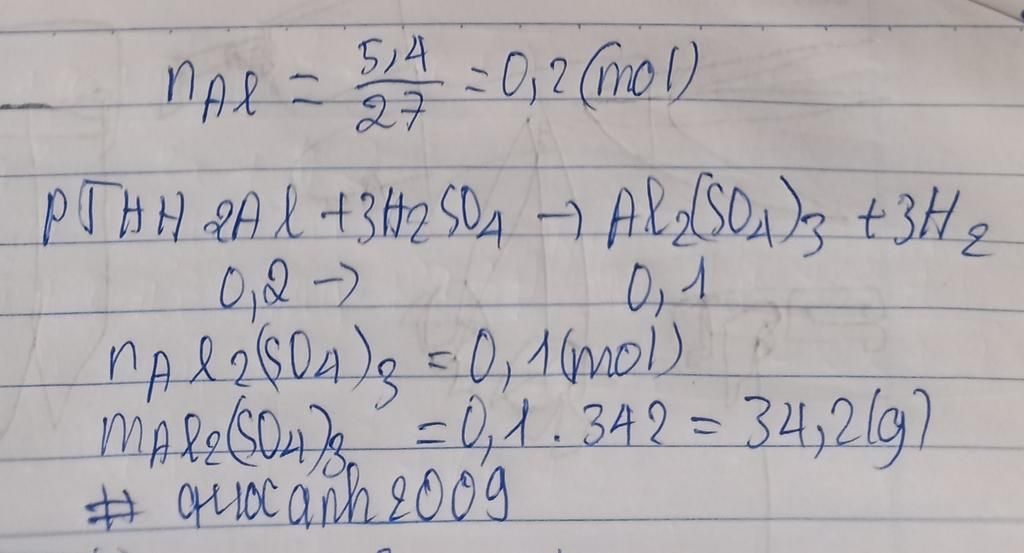 nAl = 5,4/27 = 0,2(mol)
PTHH 2Al + 3H2SO4 → Al2(SO4)3 + 3H2
0,2 → 0,1
nAl2(SO4)3 = 0,1(mol)
mAl2(SO4)3 = 0,1 . 342 = 34,2(g)
# quocanh2009